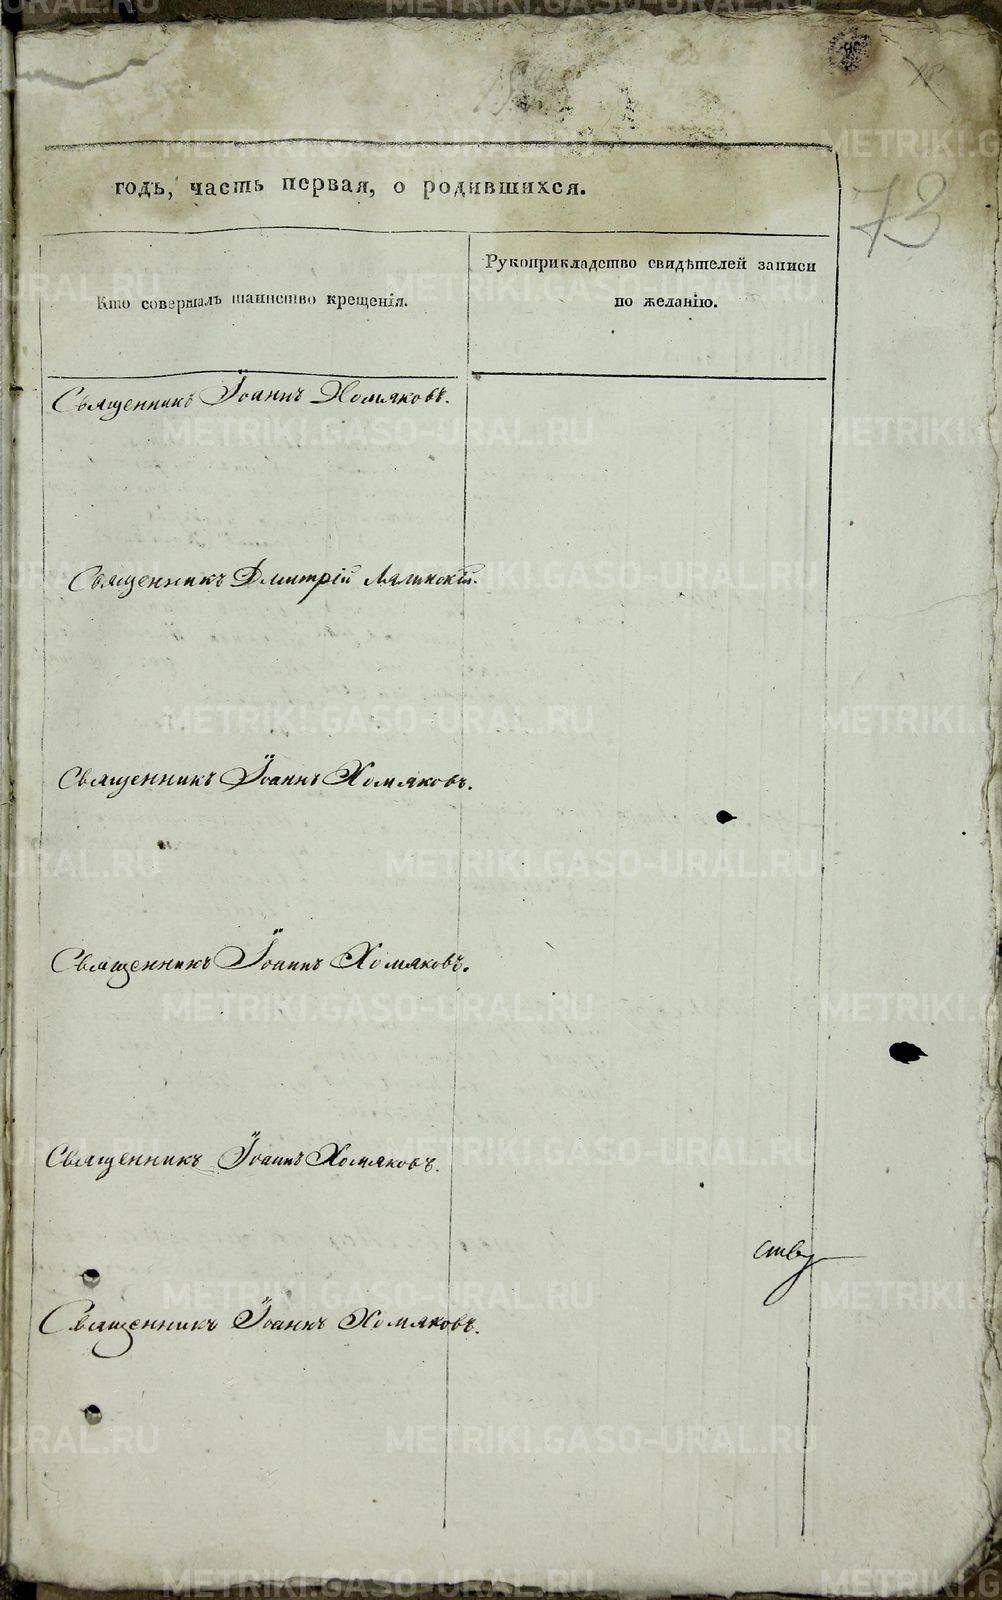 73
годъ, часть первая, о родившихся.
Кто совершалъ таинство крещенія.
Рукоприкладство свидѣтелей записи
по желанію.
Священникъ Іоаннъ Хомяковъ.
Священникъ Дмитрій Лялинскій.
Священникъ Іоаннъ Хомяковъ.
Священникъ Іоаннъ Хомяковъ.
Священникъ Іоаннъ Хомяковъ.
ству
Священникъ Іоаннъ Хомяковъ.
METRIKI.GASO-URAL.RU